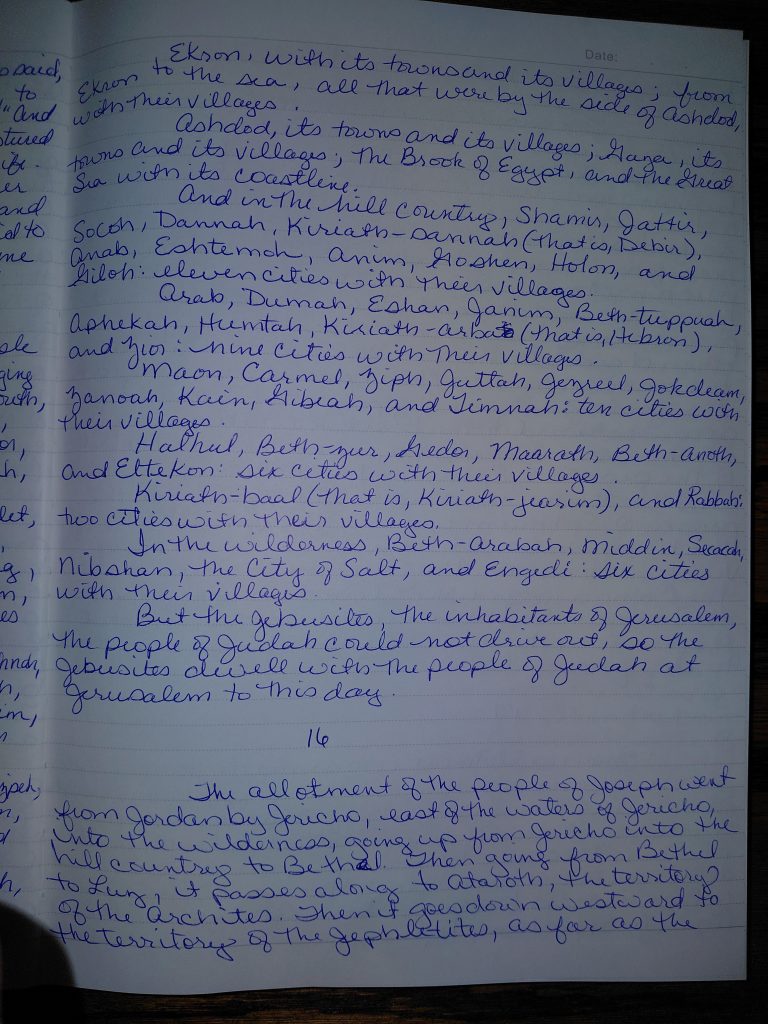 Date:
Ekron, with its towns and its villages; from
Ekron to the sea, all that were by the side of Ashdod,
with their villages.
Ashdod, its towns and its villages; Gaza, its
towns and its villages; the Brook of Egypt, and the Great
Sea with its coastline.
And in the hill country, Shamir, Jattir,
Socoh, Dannah, Kiriath-sannah (that is, Debir),
Anab, Eshtemoh, Anim, Goshen, Holon, and
Giloh: eleven cities with their villages.
Arab, Dumah, Eshan, Janim, Beth-tappuah,
Aphekah, Humtah, Kiriath-arba (that is, Hebron),
and Zior: nine cities with their villages.
Maon, Carmel, Ziph, Juttah, Jezreel, Jokdeam,
Zanoah, Kain, Gibeah, and Timnah: ten cities with
their villages.
Halhul, Beth-zur, Gedor, Maarath, Beth-anoth,
and Eltekon: six cities with their villages.
Kiriath-baal (that is, Kiriath-jearim), and Rabbah:
two cities with their villages.
In the wilderness, Beth-arabah, Middin, Secacah,
Nibshan, the City of Salt, and Engedi: six cities
with their villages.
But the Jebusites, the inhabitants of Jerusalem,
the people of Judah could not drive out, so the
Jebusites dwell with the people of Judah at
Jerusalem to this day.
16
The allotment of the people of Joseph went
from Jordan by Jericho, east of the waters of Jericho,
into the wilderness, going up from Jericho into the
hill country to Bethel. Then going from Bethel
to Luz, it passes along to Ataroth, the territory
of the Archites. Then it goes down westward to
the territory of the Japhletites, as far as the